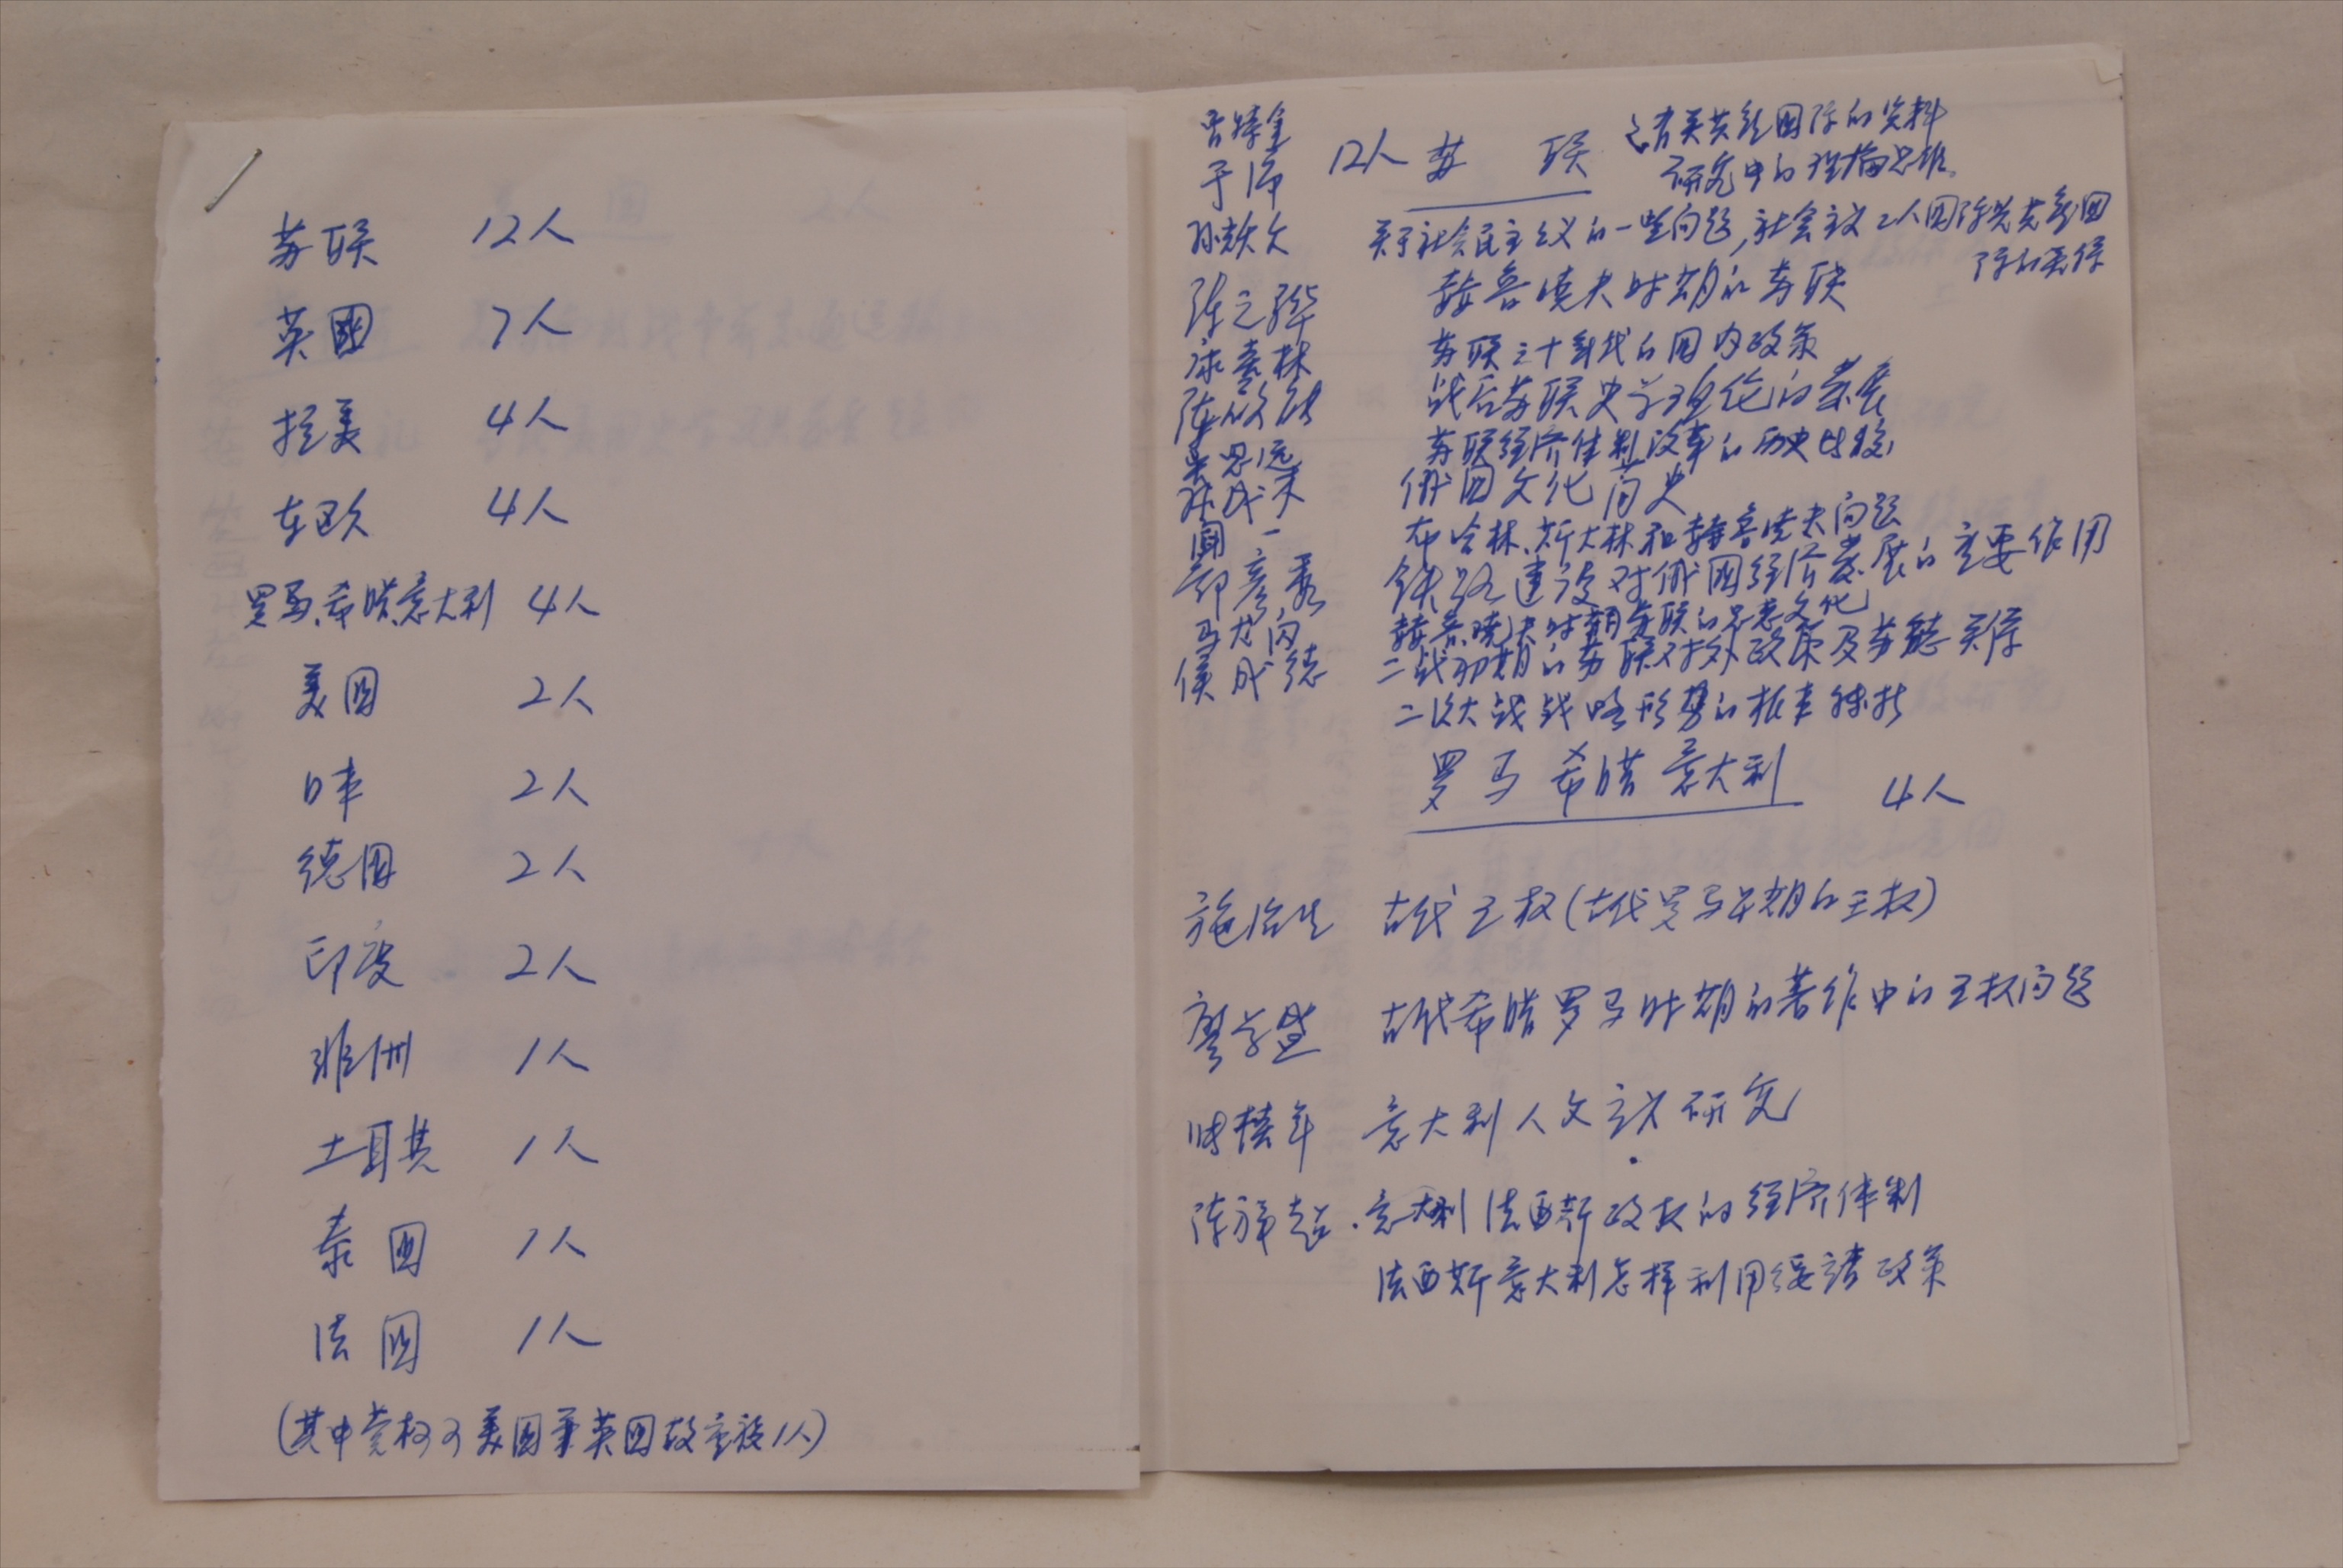 苏联 12人
英國 7人
拉美 4人
东欧 4人
罗马、希腊、意大利 4人
美国 2人
日本 2人
德国 2人
印度 2人
非洲 1人
土耳其 1人
泰国 1人
法国 1人
(其中 美国 英国故应 1人)
12人 苏 联
有关共产国际的资料
研究中的理论
于沛
孙
关于社会民主主义的一些问题,社会主义工人国际 共产国
际的关系
陈之骅 赫鲁晓夫时期的苏联
康春林 苏联三十年代的国内政策
陈 战后苏联史学理论的发展
吴恩远 苏联经济体制改革的历史比较
孙成木 俄国文化简史
闻一 布哈林、斯大林和赫鲁晓夫问题
部彦秀 铁路建设对俄国经济发展的主要作用
马龙闪 赫鲁晓夫时期苏联的思想文化
侯成德 二战初期的苏联对外政策及苏德关系
二次大战战略形势的根本转折
罗马 希腊 意大利 4人
施治生 古代王权(古代罗马早期的王权)
廖学盛 古代希腊罗马时期的著作中的王权问题
意大利人文主义研究
陈祥超 . 意大利法西斯政权的经济体制
法西斯意大利怎样利用绥靖政策